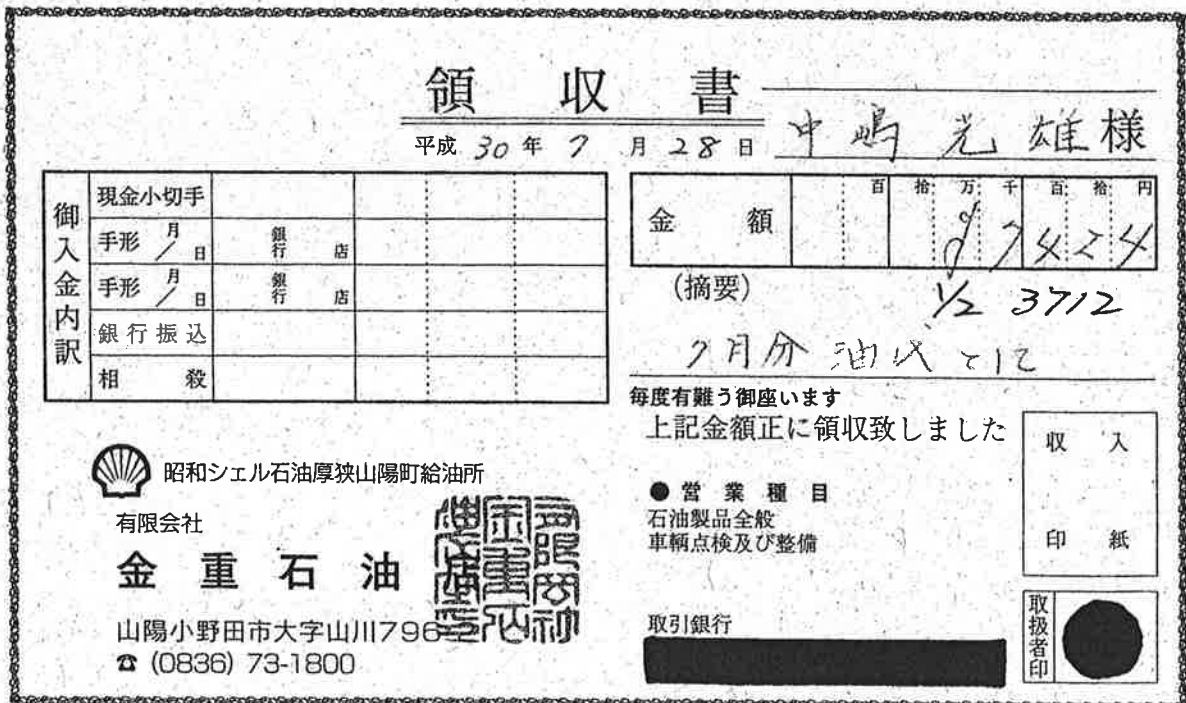 領収書
平成 30 年 7 月 28 日
中嶋光雄様
御入金内訳
現金小切手
手形 月/日 銀行 店
手形 月/日 銀行 店
銀行振込
相殺
金額
百 拾 万 千 百 拾 円
7 4 2 4
(摘要)
1/2 3712
7月分 油代
毎度有難う御座います
上記金額正に領収致しました
収入印紙
昭和シェル石油厚狭山陽町給油所
有限会社
金重石油店
山陽小野田市大字山川796-2
☎ (0836) 73-1800
●営業種目
石油製品全般
車輌点検及び整備
取引銀行
取扱者印